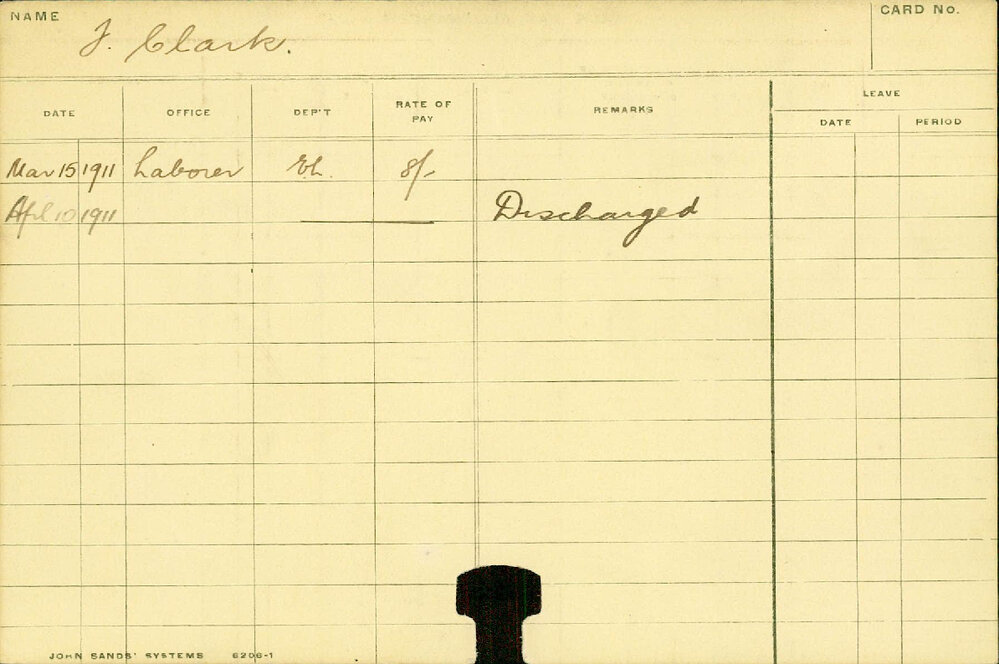 NAME J. Clark. CARD No.
DATE OFFICE DEP'T RATE OF PAY REMARKS LEAVE
DATE PERIOD
Mar 15 1911 Laborer 8/-
Apl 10 1911 Discharged
JOHN SANDS' SYSTEMS 6206-1